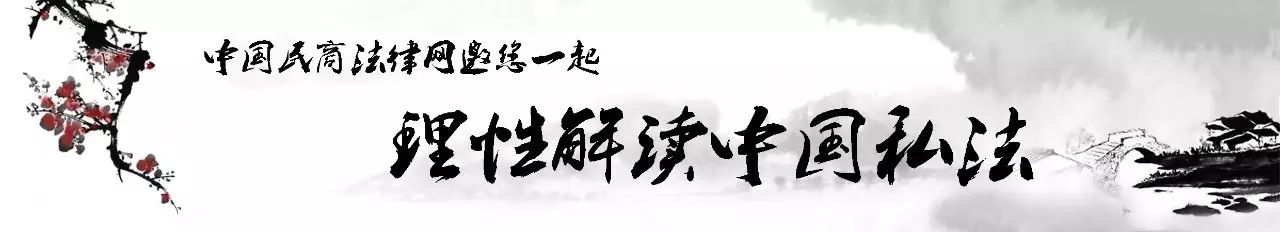 中国民商法律网邀您一起
理性解读中国私法